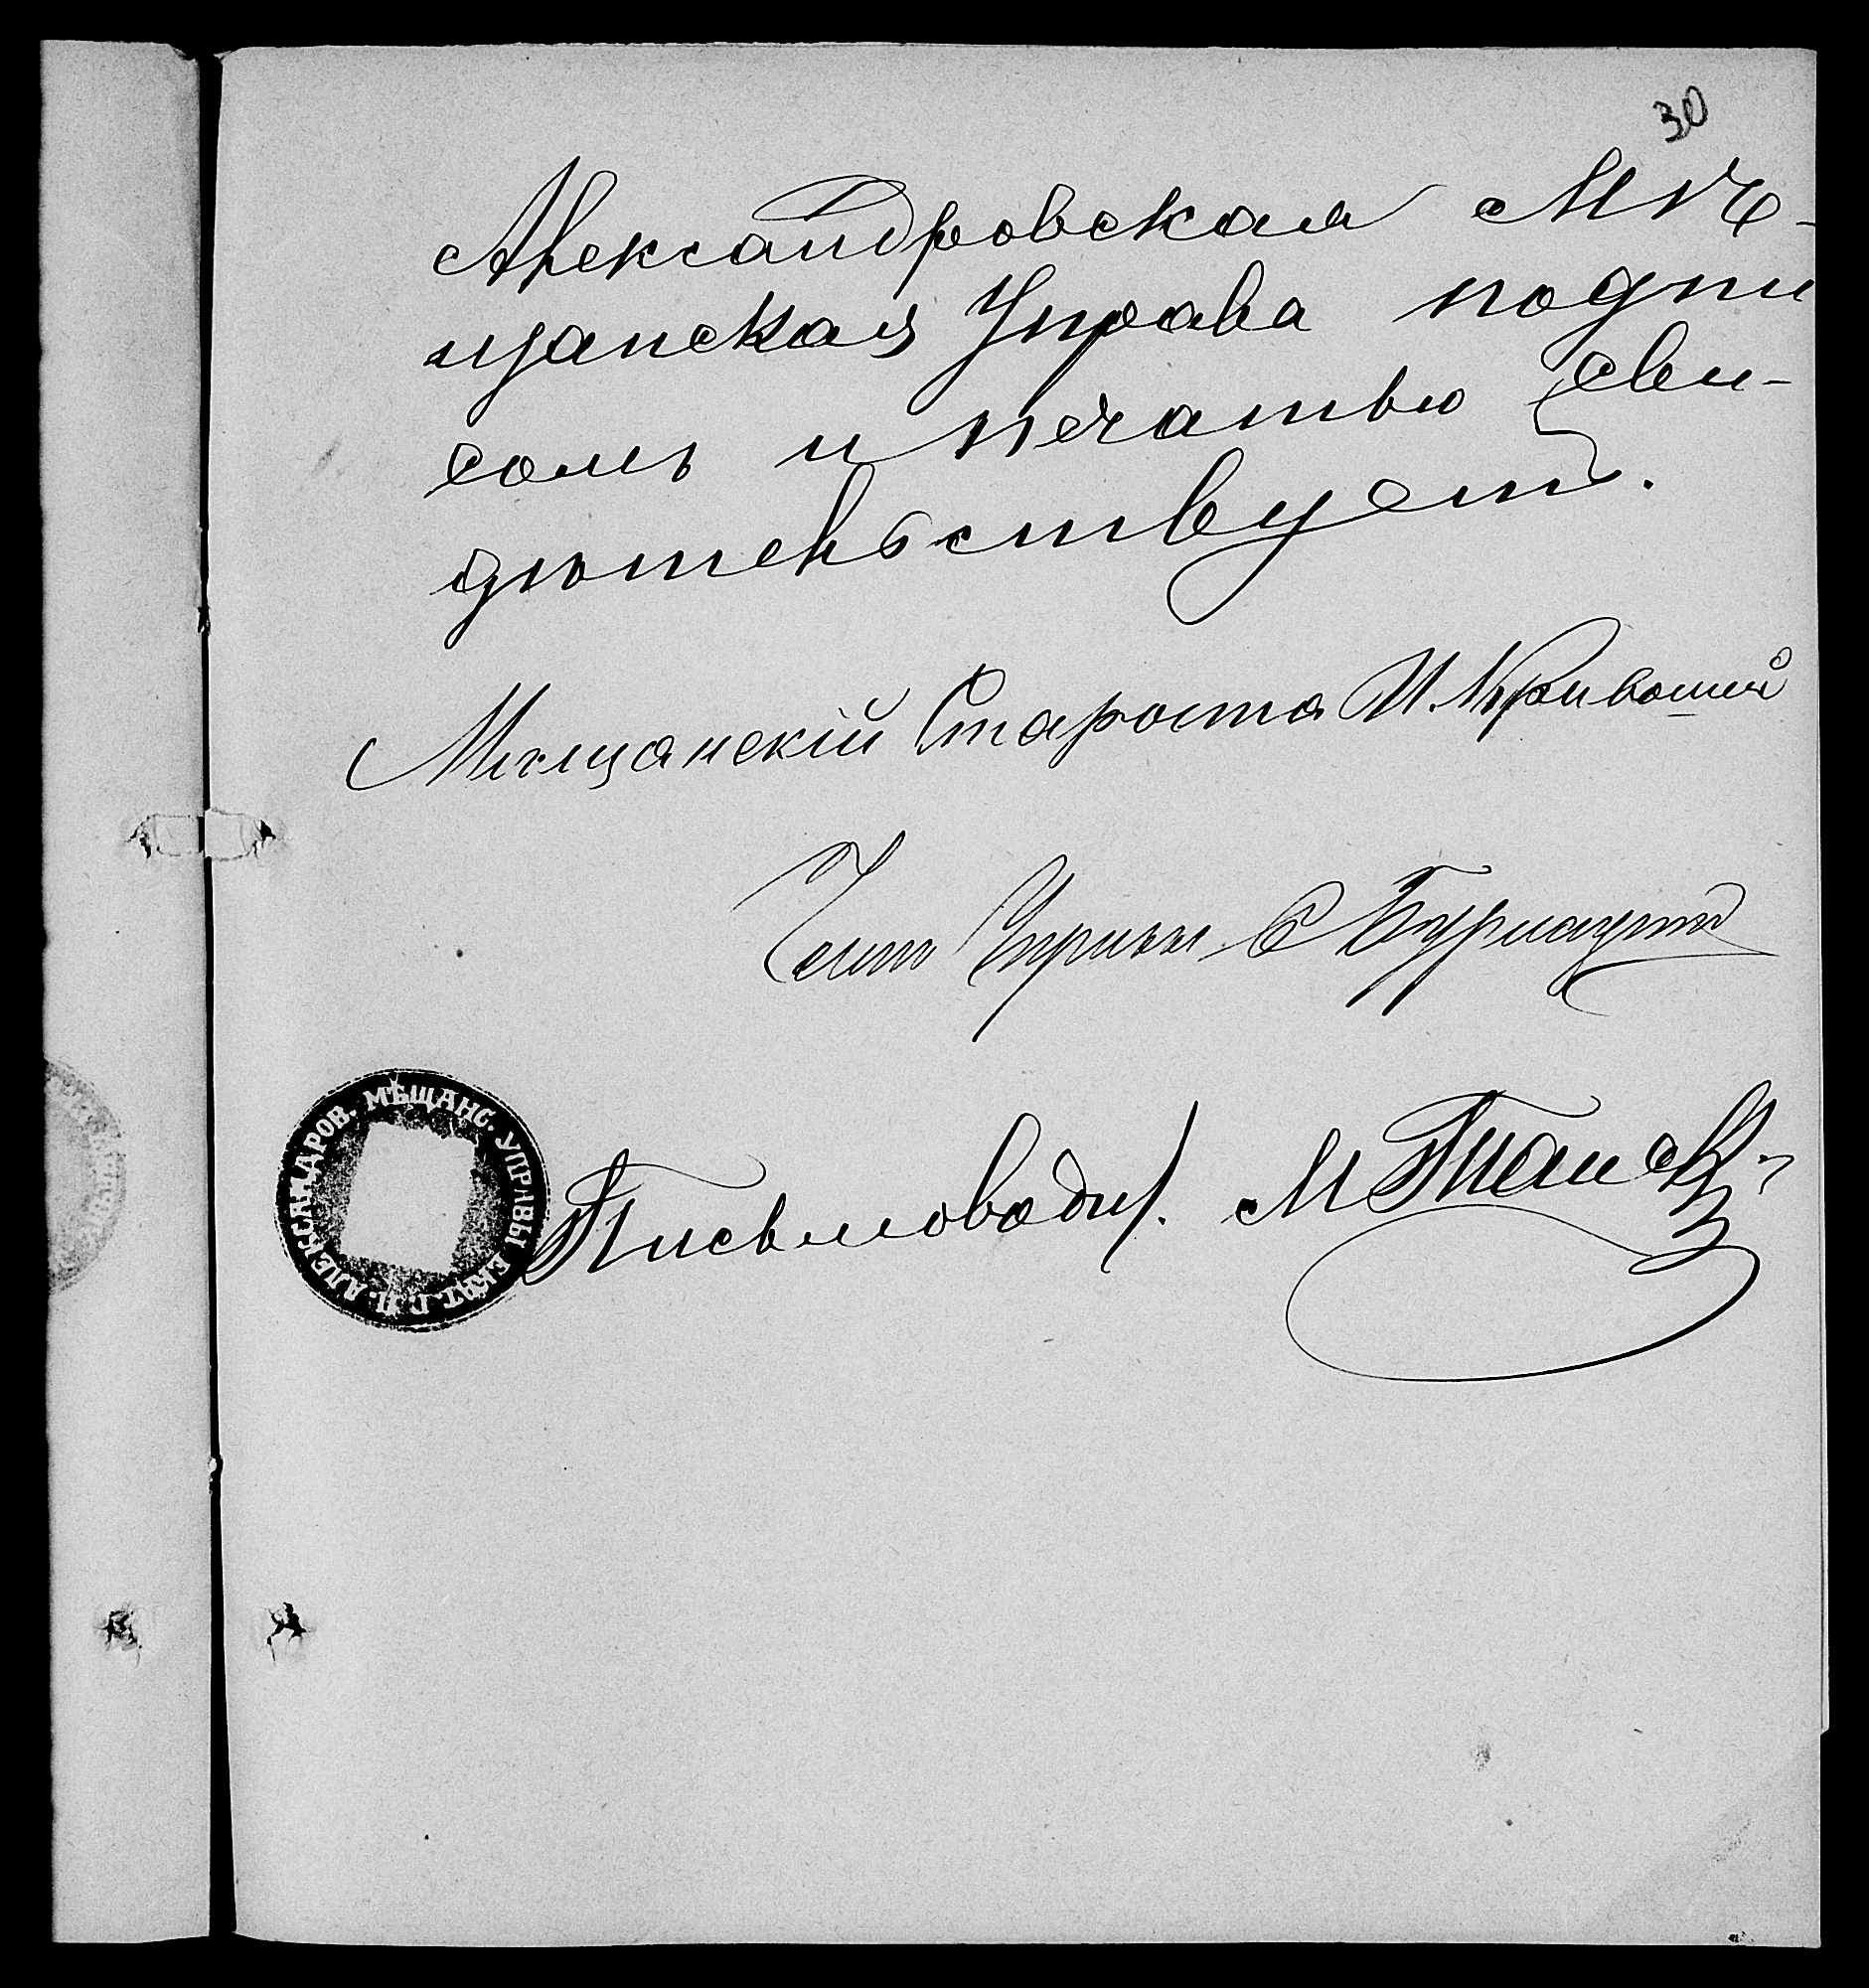 30
Александровская Мѣ-
щанская Управа подпи
сомъ и печатью сви-
дѣтельствуетъ.
Мѣщанскій Староста И. Кривошей
Членъ Управы С
Письмовод. М
АЛЕКСАНДРОВ. МѢЩАНС. УПРАВЫ ЕКАТ. Г.